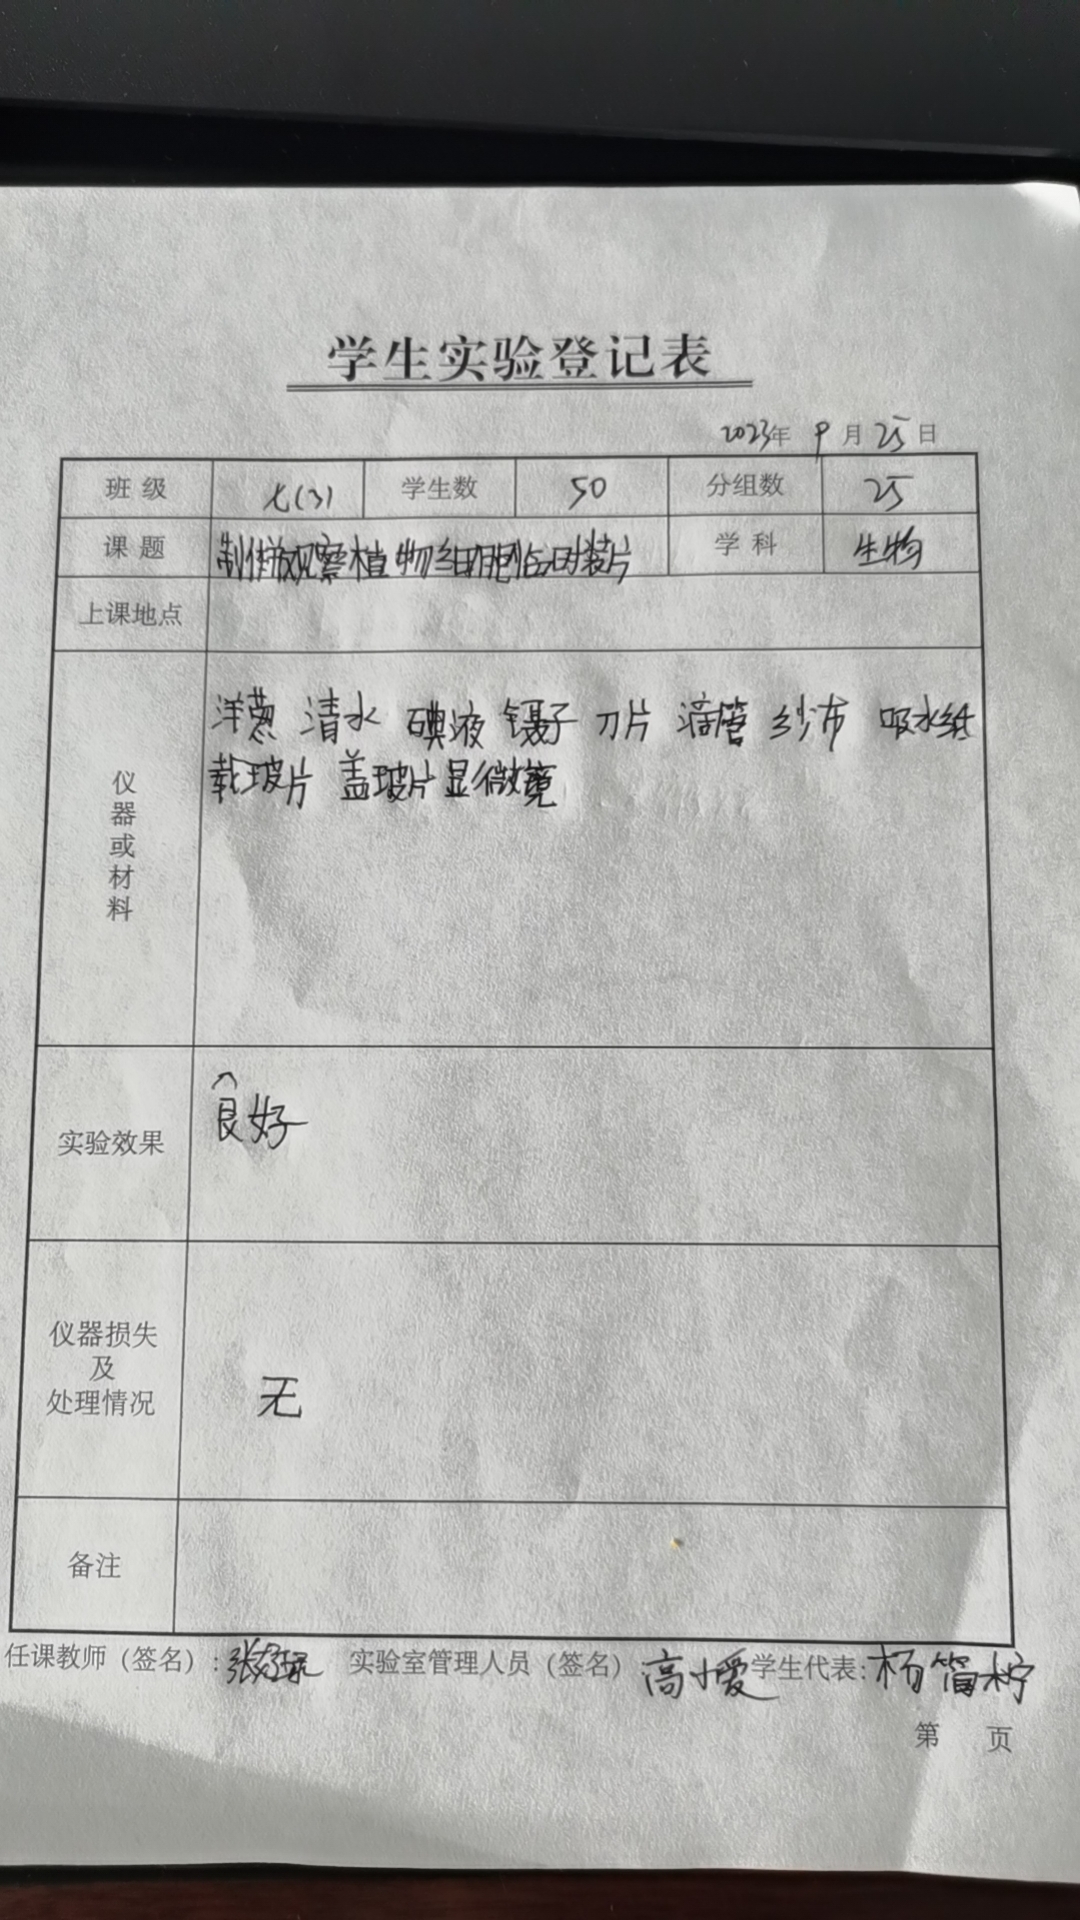 学生实验登记表
2023年 9月25日
班级 七(3) 学生数 50 分组数 25
课题 制作并观察植物细胞临时装片 学科 生物
上课地点
仪器或材料
洋葱 清水 碘液 镊子 刀片 滴管 纱布 吸水纸
载玻片 盖玻片 显微镜
实验效果 良好
仪器损失
及
处理情况 无
备注
任课教师（签名）：张 实验室管理人员（签名） 高小爱 学生代表：杨简柠
第 页